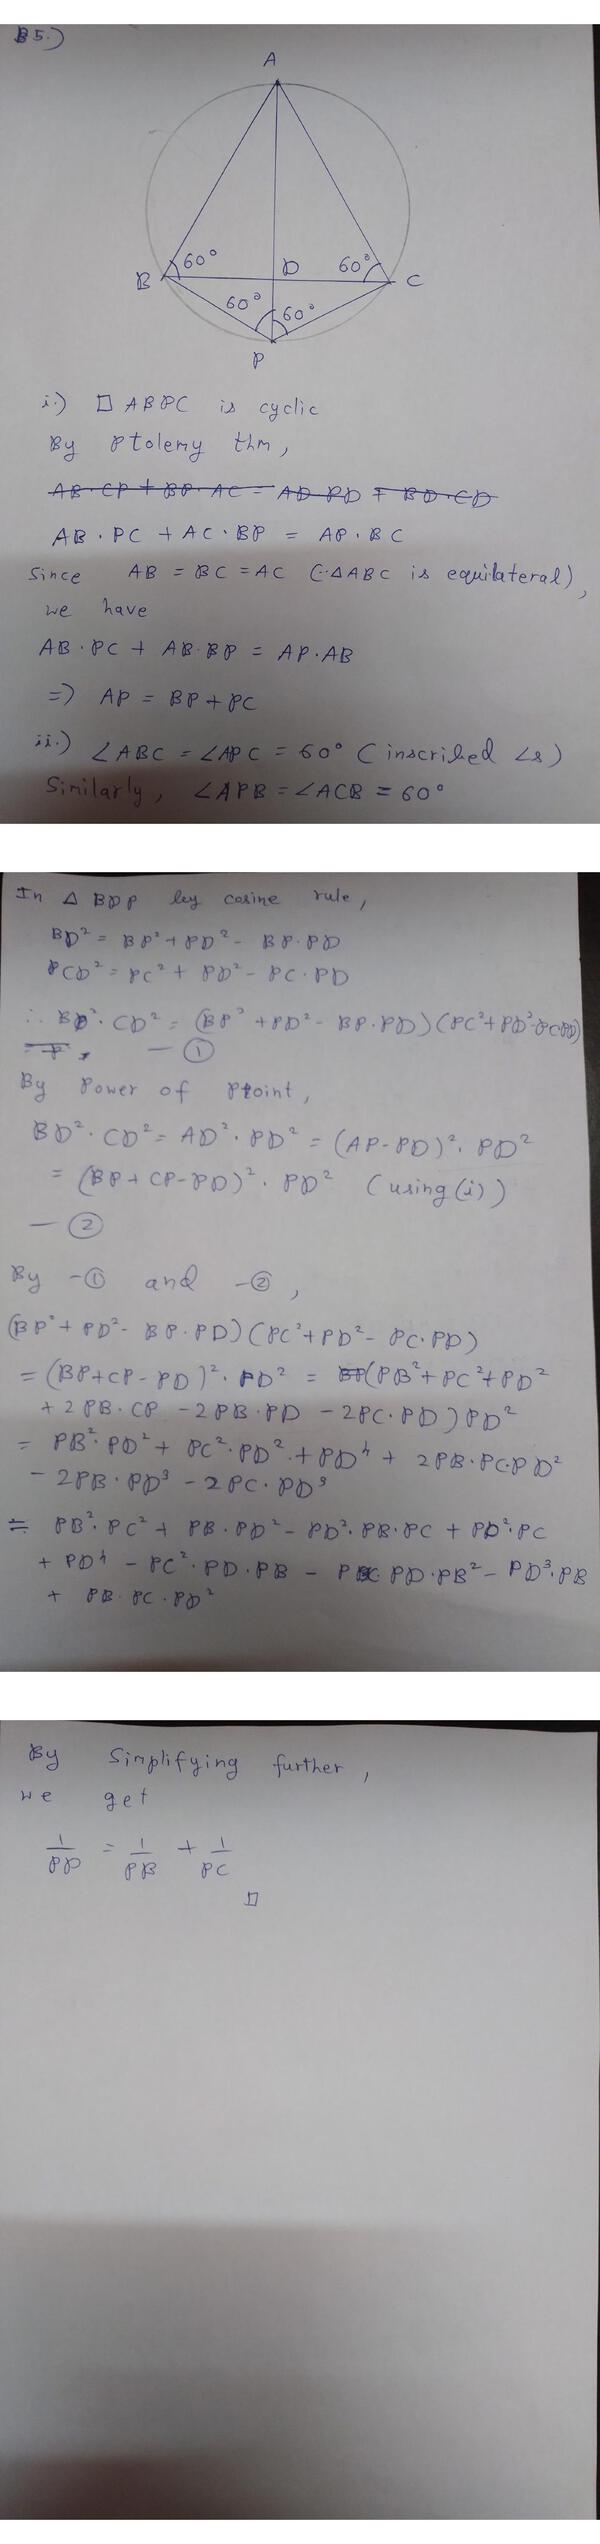 B5.)
A
60°
60°
B
D
C
60°
60°
P
i.) □ ABPC is cyclic
By Ptolemy thm,
AB·CP + BP·AC = AD·PD + BD·CD
AB·PC + AC·BP = AP·BC
Since AB = BC = AC (∵ΔABC is equilateral),
we have
AB·PC + AB·BP = AP·AB
=> AP = BP+PC
ii.) ∠ABC = ∠APC = 60° (inscribed ∠s)
Similarly, ∠APB = ∠ACB = 60°
In Δ BDP by cosine rule,
BD² = BP² + PD² - BP·PD
CD² = PC² + PD² - PC·PD
∴ BD²·CD² = (BP² + PD² - BP·PD)(PC²+PD²-PC·PD)
— ①
By Power of Point,
BD²·CD² = AD²·PD² = (AP-PD)²·PD²
= (BP+CP-PD)²·PD² (using(i))
— ②
By -① and -②,
(BP²+PD²-BP·PD)(PC²+PD²-PC·PD)
= (BP+CP-PD)²·PD² = (PB²+PC²+PD²
+2PB·CP -2PB·PD -2PC·PD)PD²
= PB²·PD² + PC²·PD² + PD⁴ + 2PB·PC·PD²
- 2PB·PD³ - 2PC·PD³
= PB²·PC² + PB·PD² - PD²·PB·PC + PD²·PC
+ PD⁴ - PC²·PD·PB - PC PD·PB² - PD³·PB
+ PB·PC·PD²
By Simplifying further,
we get
1/PD = 1/PB + 1/PC
□